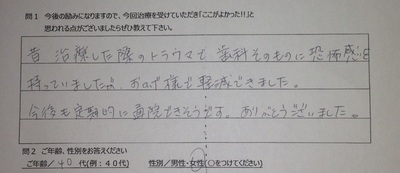 問1 今後の励みになりますので、今回治療を受けていただき「ここがよかった!!」と
思われる点がございましたらぜひ教えて下さい。
昔 治療した際のトラウマで、歯科そのものに恐怖感を
持っていましたが、おかげ様で軽減できました。
今後も定期的に通院できそうです。ありがとうございました。
問2 ご年齢、性別をお答えください
ご年齢/40代(例:40代) 性別/男性・女性(○をつけてください)